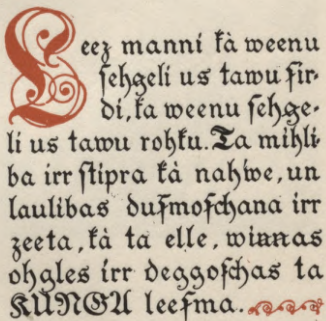 Leez manni kà weenu
ſehgeli us tawu ſir-
di, ka weenu ſehge-
li us tawu rohku. Ta mihli-
ba irr ſtipra kà nahwe, un
laulibas duſmoſchana irr
zeeta, kà ta elle, winnas
ohgles irr deggoſchas ta
KUNGA leeſma..